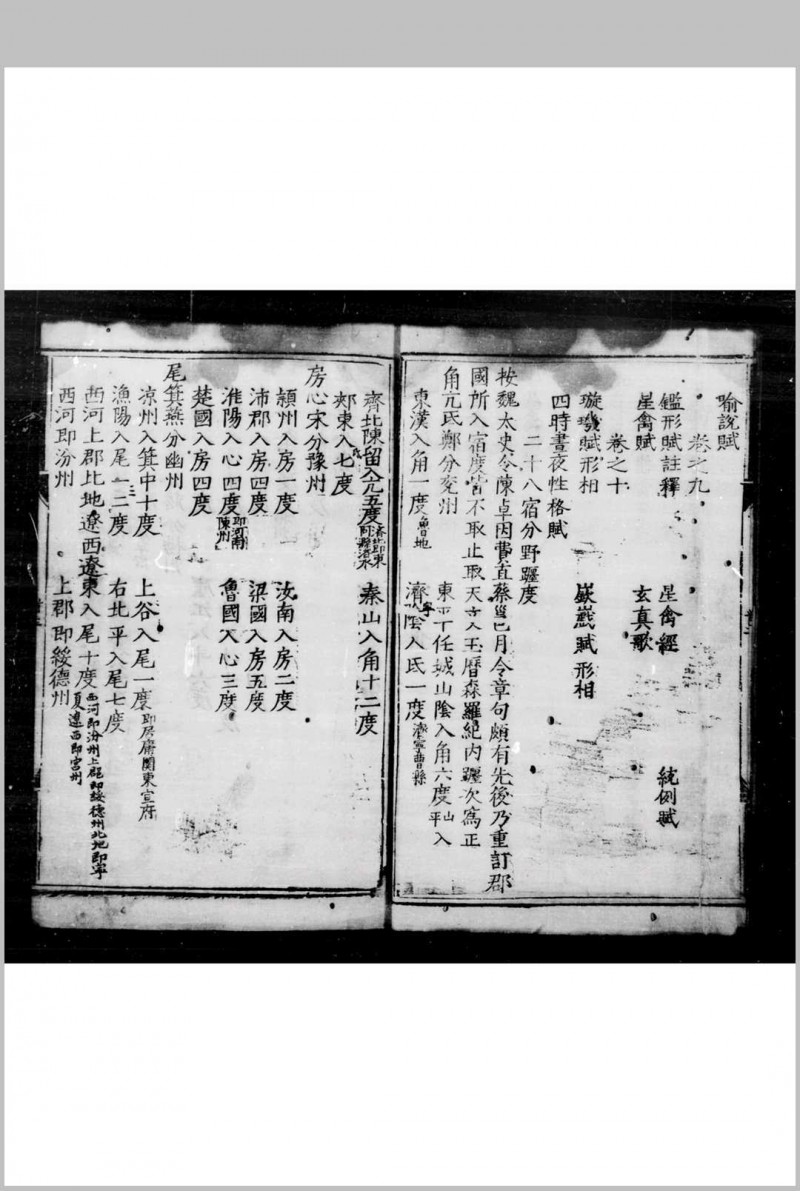 喻說賦
卷之九
鑑形賦註釋 星禽經 統例賦
星禽賦 玄真歌
卷之十
璇璣賦形相 嶽嶻賦形相
四時晝夜性格賦
二十八宿分野躔度
按魏太史令陳卓因費直蔡邕巳月令章句頗有先後乃重訂郡
國所入宿度皆不取止取天文入玉曆森羅紀內躔次寫正
角亢氐鄭分兗州 東平任城山陰入角六度 入
東漢入角一度魯地 濟陰入氐一度濟寧曹縣
齊北陳留入亢五度濟北即東 泰山入角十二度
郊東入七度
房心宋分豫州
潁州入房一度 汝南入房二度
沛郡入房四度 梁國入房五度
淮陽入心四度即河南陳州 魯國入心三度
楚國入房四度
尾箕燕分幽州
凉州入箕中十度 上谷入尾一度即居庸関東宣府
漁陽入尾一二度 右北平入尾七度
西河上郡比地遼西遼東入尾十度西河即汾州上郡即綏德州北地即寧夏遼西即宮州
西河即汾州 上郡即綏德州